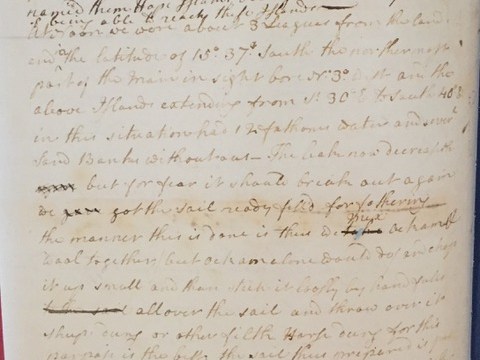 named them Hope Islands
is being able to reach these Islands
At Noon we were about 3 Leagues from the land
and in the latitude of 15° 37' South the northermost
part of the Main in sight bore N. 3° West and the
above Islands extending from S. 30° E to South 40° E
in this situation had 12 fathoms water and sever^l
Sand Banks without us - The leak now decreaseth
but for fear it should break out again
we got the Sail ready fill'd for fothering
the manner this is done is thus we Mix Ockam &
Wool together (but Ockam alone would do) and chop
it up small and then stick it loosly by hand fulls
all over the sail and throw over it
sheeps dung or other filth Horse dung for this
purpose is the best. The sail thus prepared is